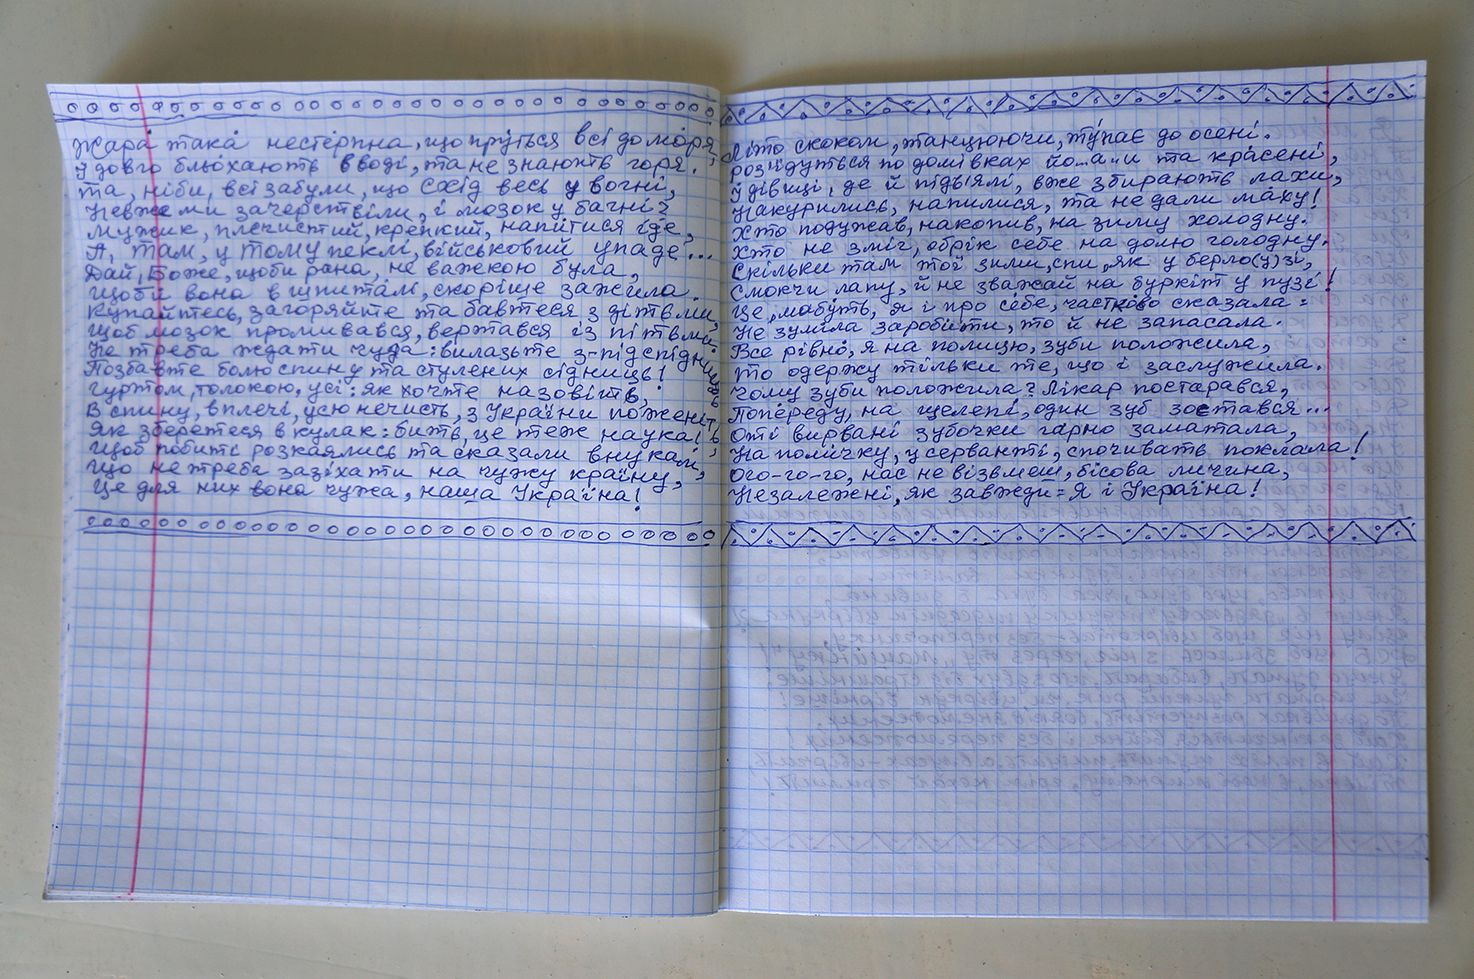 Жара така нестерпна, що пруться всі до моря,
Й довго бльохають в воді, та не знають горя.
Та, ніби, всі забули, що Схід весь у вогні,
Невже ми зачерствіли, і мозок у багні?
Мужик, плечистий, крепкий, напитися іде,
А, там, у тому пеклі, військовий упаде...
Дай, Боже, щоби рана, не важкою була,
Щоби вона в шпиталі, скоріше зажила.
Купайтесь, загоряйте та бавтеся з дітьми,
Щоб мозок промивався, вертався із пітьми.
Не треба ждати чуда: вилазьте з-під спідниць
Позбавте болю спину та стулених сідниць!
Гуртом, толокою, усі: як хочте назовіть,
В спину, в плечі, усю нечисть, з України поженіть,
Як зберетеся в кулак: бить, це теж наука!
Щоб побиті розкаялись та сказали внукам,
Що не треба зазіхати на чужу країну,
Це для них вона чужа, наша Україна!
Літо скоком, танцюючи, тупає до осені.
розідуться по домівках йо..а..и та красені,
Й дівиці, де й підв'ялі, вже збирають лахи,
Накурились, напились, та не дали маху!
Хто подужав, накопив, на зиму холодну.
Хто не зміг, обрік себе на долю голодну.
Скільки там той зими, спи, як у берло(у)зі,
Смокчи лапу, й не зважай на буркіт у пузі!
Це, мабуть, я і про себе, частково сказала:
Не зуміла заробити, то й не запасала.
Все рівно, я на полицю, зуби положила,
То одержу тільки те, що і заслужила.
Чому зуби положила? Лікар постарався,
Попереду, на щелепі, один зуб зостався...
Оті вирвані зубочки гарно заматала,
На поличку, у серванті, спочивать поклала!
Ого-го-го, нас не візьмеш, бісова личина,
Незалежні, як завжди = Я і Україна!